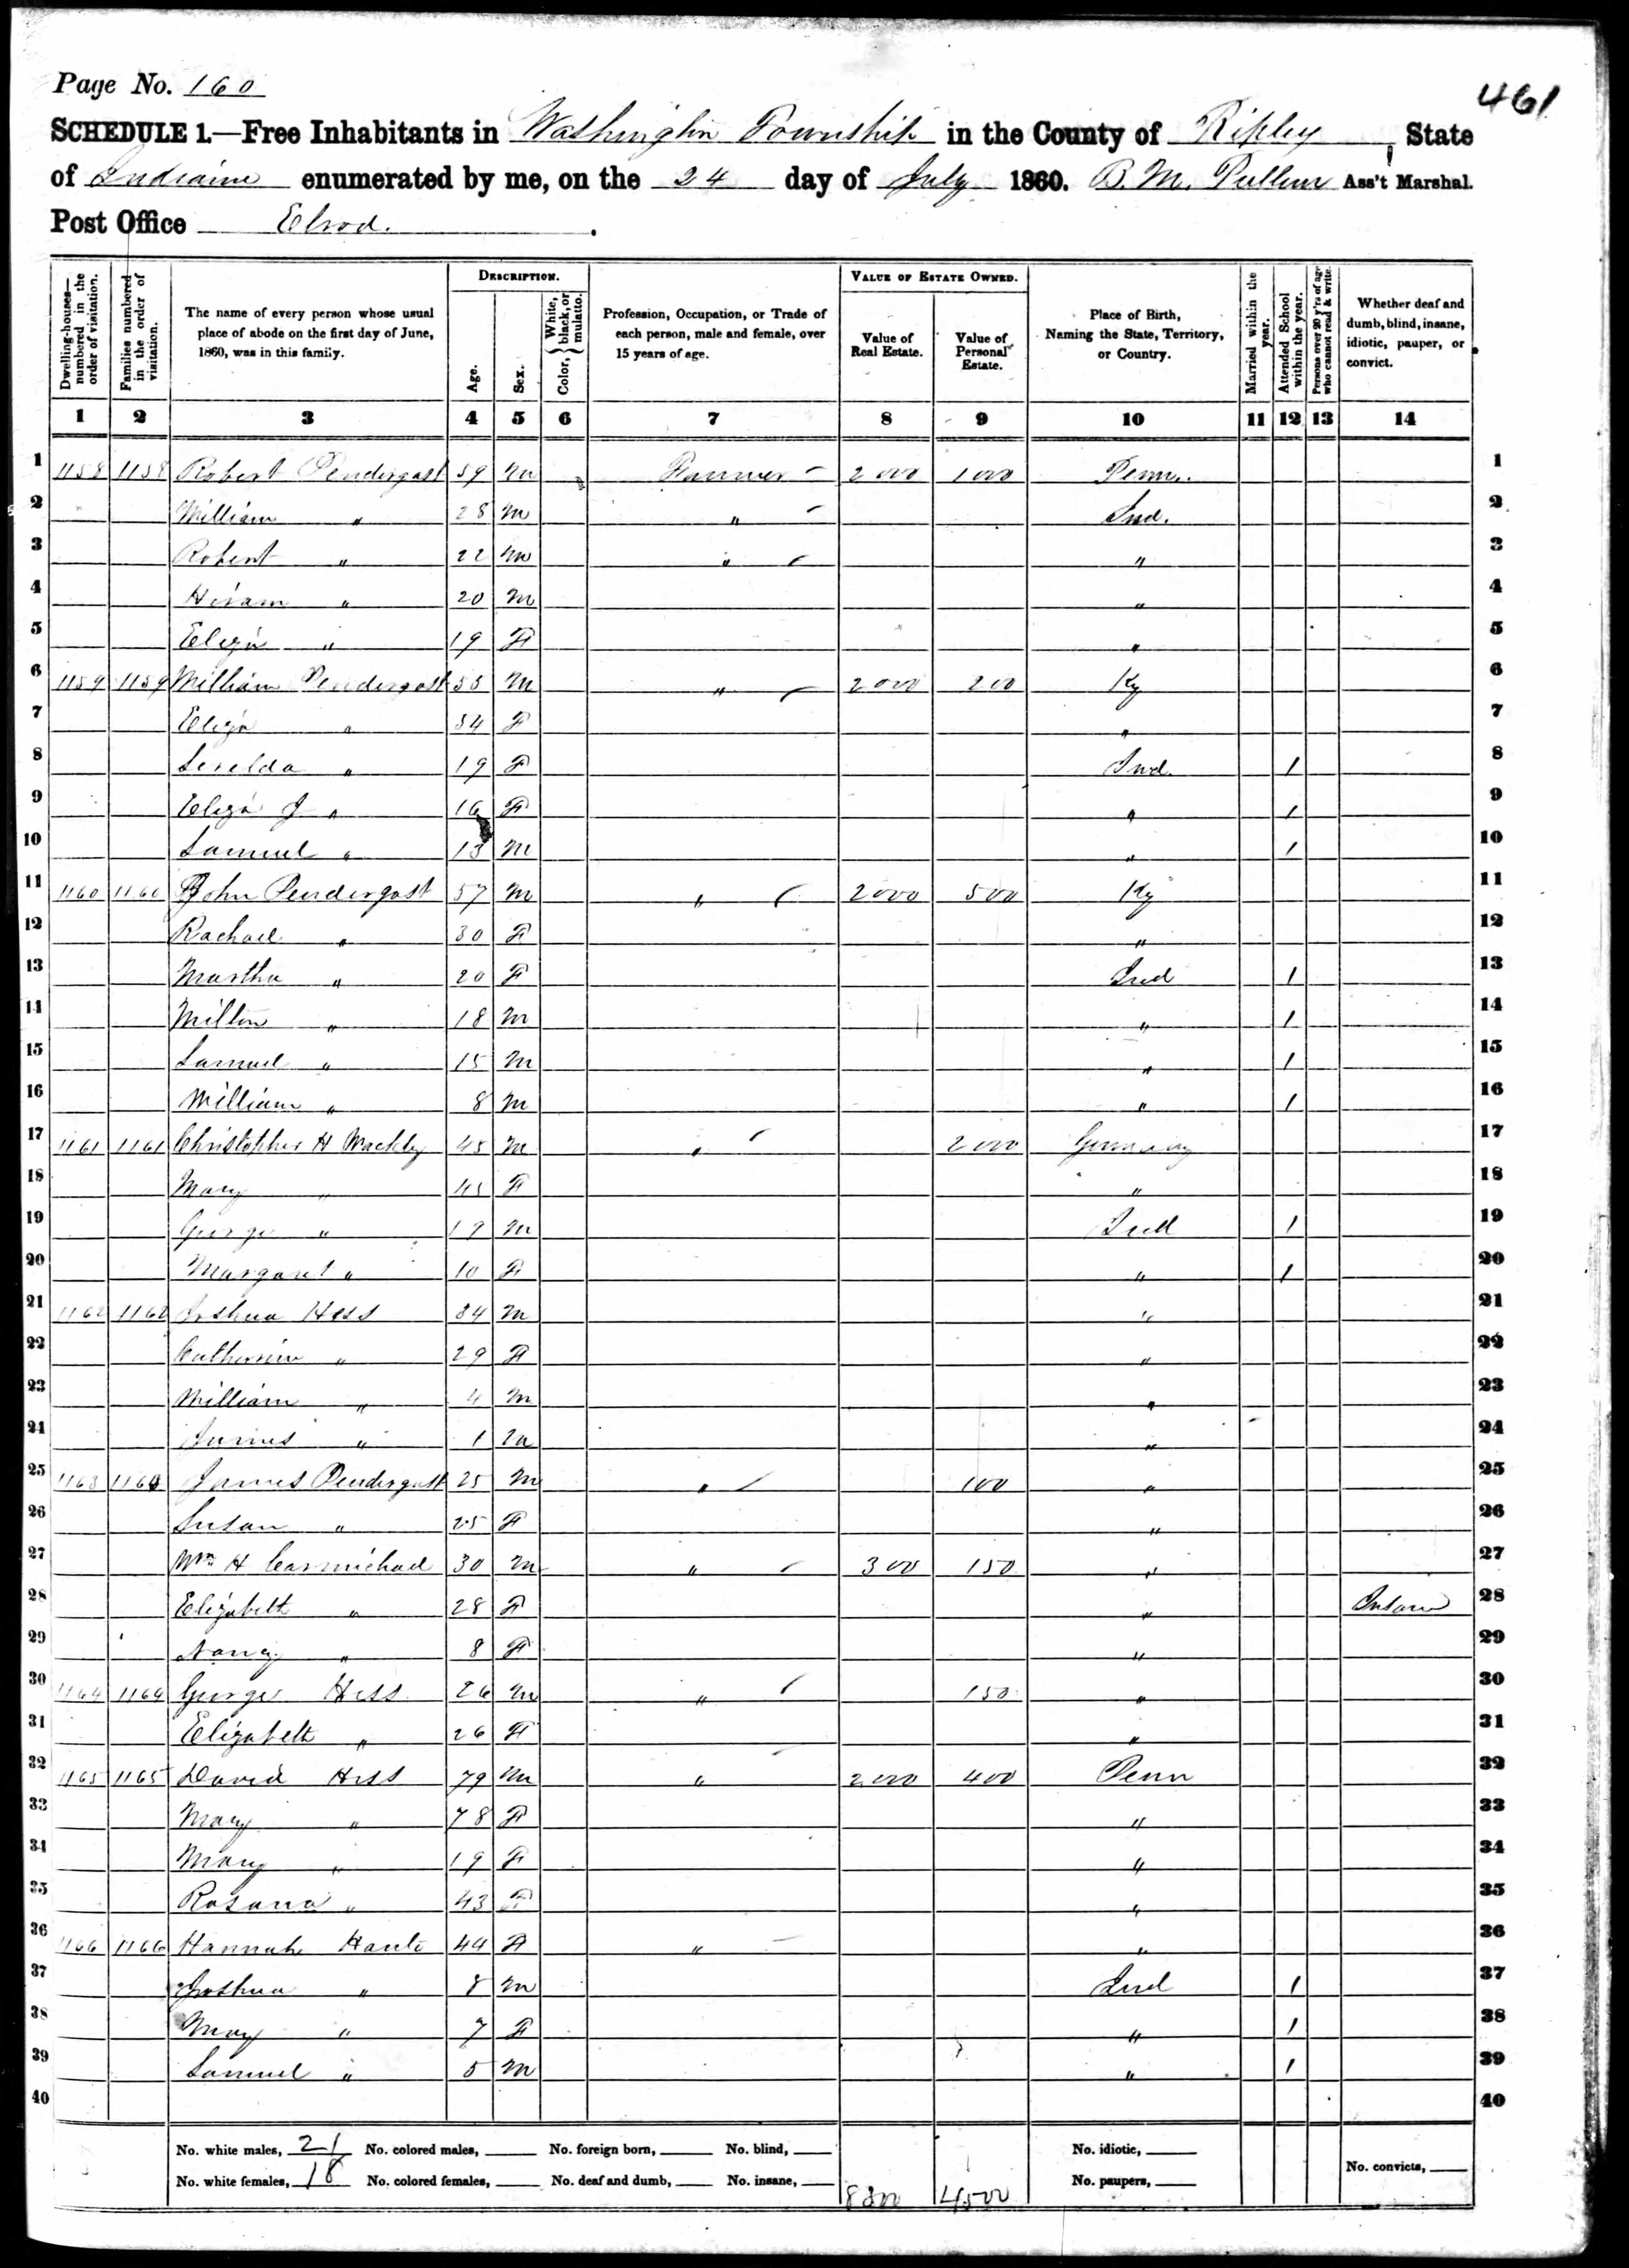 Page No. 160
461
SCHEDULE 1.—Free Inhabitants in Washington Township in the County of Ripley, State
of Indiana enumerated by me, on the 24 day of July 1860. B. M. Pullen Ass't Marshal.
Post Office Elrod.
Dwelling-houses—numbered in the order of visitation. Families numbered in the order of visitation. The name of every person whose usual place of abode on the first day of June, 1860, was in this family. DESCRIPTION. Age. Sex. Color, { White, black, or mulatto. Profession, Occupation, or Trade of each person, male and female, over 15 years of age. VALUE OF ESTATE OWNED. Value of Real Estate. Value of Personal Estate. Place of Birth, Naming the State, Territory, or Country. Married within the year. Attended School within the year. Persons over 20 y'rs of age who cannot read & write. Whether deaf and dumb, blind, insane, idiotic, pauper, or convict.
1 2 3 4 5 6 7 8 9 10 11 12 13 14
1 1158 1158 Robert Pendergast 59 m Farmer 2000 1000 Penn. 1
2 William " 28 m " Ind. 2
3 Robert " 22 m " " 3
4 Hiram " 20 m " 4
5 Eliza " 19 F " 5
6 1159 1159 William Pendergast 55 m " 2000 200 Ky 6
7 Eliza " 54 F " 7
8 Serelda " 19 F Ind. 1 8
9 Eliza J " 16 F " 1 9
10 Samuel " 13 m " 1 10
11 1160 1160 John Pendergast 57 m " 2000 500 Ky 11
12 Rachael " 30 F " 12
13 Martha " 20 F Ind 1 13
14 Milton " 18 m " 1 14
15 Samuel " 15 m " 1 15
16 William " 8 m " 1 16
17 1161 1161 Christopher H Mackley 45 m " 2000 Germany 17
18 Mary " 45 F " 18
19 George " 19 m Ind 1 19
20 Margaret " 10 F " 1 20
21 1162 1162 Joshua Hess 34 m " 21
22 Catherine " 29 F " 22
23 William " 4 m " 23
24 James " 1 m " 24
25 1163 1163 James Pendergast 25 m " 100 " 25
26 Susan " 25 F " 26
27 Wm H Carmichael 30 m " 300 150 " 27
28 Elizabeth " 28 F " Insane 28
29 Nancy " 8 F " 29
30 1164 1164 George Hess 26 m " 150 " 30
31 Elizabeth " 26 F " 31
32 1165 1165 David Hess 79 m " 2000 400 Penn 32
33 Mary " 78 F " 33
34 Mary " 19 F " 34
35 Rosana " 43 F " 35
36 1166 1166 Hannah 44 F " " 36
37 Joshua " 8 m Ind 1 37
38 Mary " 7 F " 1 38
39 Samuel " 5 m " 1 39
40 40
No. white males, 21 No. colored males, No. foreign born, No. blind, No. idiotic,
No. white females, 18 No. colored females, No. deaf and dumb, No. insane, 8300 4500 No. paupers, No. convicts,